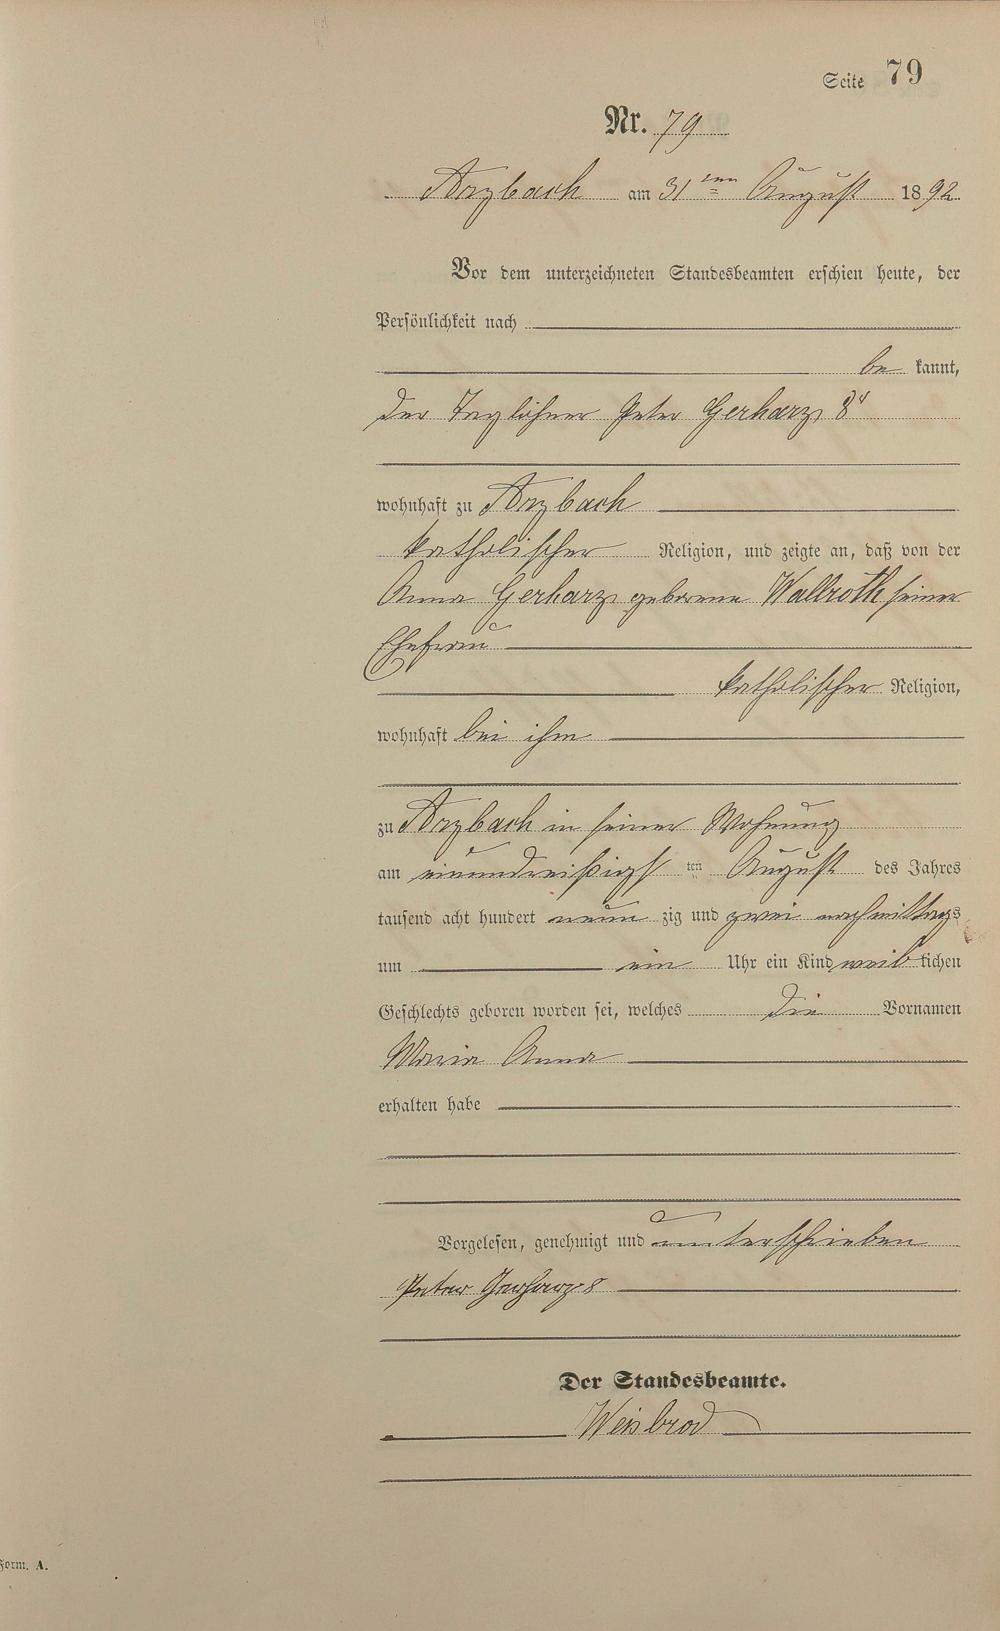 Seite 79
Nr. 79
Arzbach am 31ten August 1892
Vor dem unterzeichneten Standesbeamten erschien heute, der
Persönlichkeit nach
be kannt,
der Taglöhner Peter Gerharz 8t
wohnhaft zu Arzbach
katholischer Religion, und zeigte an, daß von der
Anna Gerharz geborene Wallroth seiner
Ehefrau
katholischer Religion,
wohnhaft bei ihm
zu Arzbach in seiner Wohnung
am einunddreißigst ten August des Jahres
tausend acht hundert neun zig und zwei nachmittags
um ein Uhr ein Kind weib lichen
Geschlechts geboren worden sei, welches die Vornamen
Maria Anna
erhalten habe
Vorgelesen, genehmigt und unterschrieben
Peter Gerharz 8
Der Standesbeamte.
Weisbrod
Form. A.